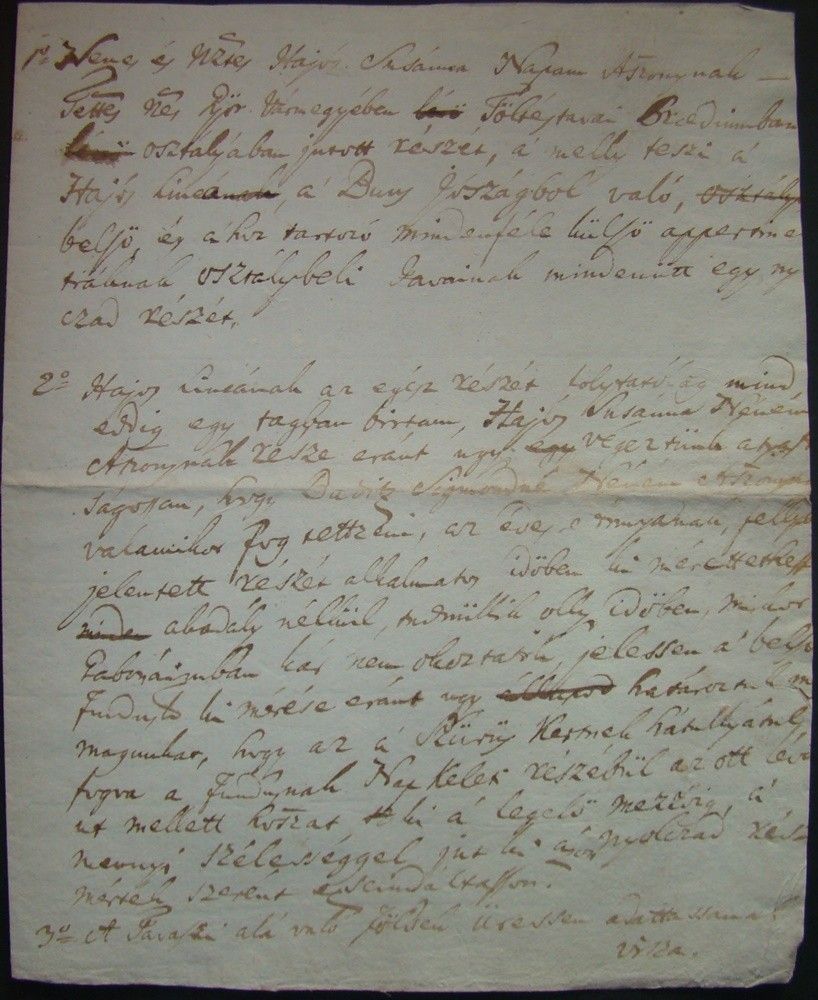 1o Nemes és Nztes Hajós Susánna Napam Aszonynak —
Ttes Nes Győr Vármegyében lévő Földéstavai Praediumban
lévő osztályában jutott részét, a' melly teszi a'
Hajós lineának, a' Duny Jószágból való, osztály
belső, és ahoz tartozó mindenféle külső appertine
tiáknak osztálybeli Javainak mindenütt egy ny
czad részét.
2o Hajos Lineának az egész részét folytatóság mind
eddig egy tagban birtam, Hajós Susánna Néném
Aszonynak része eránt ugy egy végeztünk
ságossan, hogy Sigmondné Néném Aszonyn
valamikor fog tettzeni, az éves fellyeb
jelentett részét alkalmatos időben ki mérettethess
minden akadály nélkül, tudniillik olly időben, mikor
kár nem okoztatik, jelessen a' belső
Fundus ki mérése eránt ugy határoztuk m
magunkat, hogy az a' Szürüs Kertnek
fogva a Fundusnak Nap Kelet részéről az ott lévő
ut mellett hoszat ki a' legelő mezőig, a'
mennyi szélességgel jut ki azon nyolczad rész
mérték szerént
3o A Tavaszi alá való földek üressen adattassanak
visza.